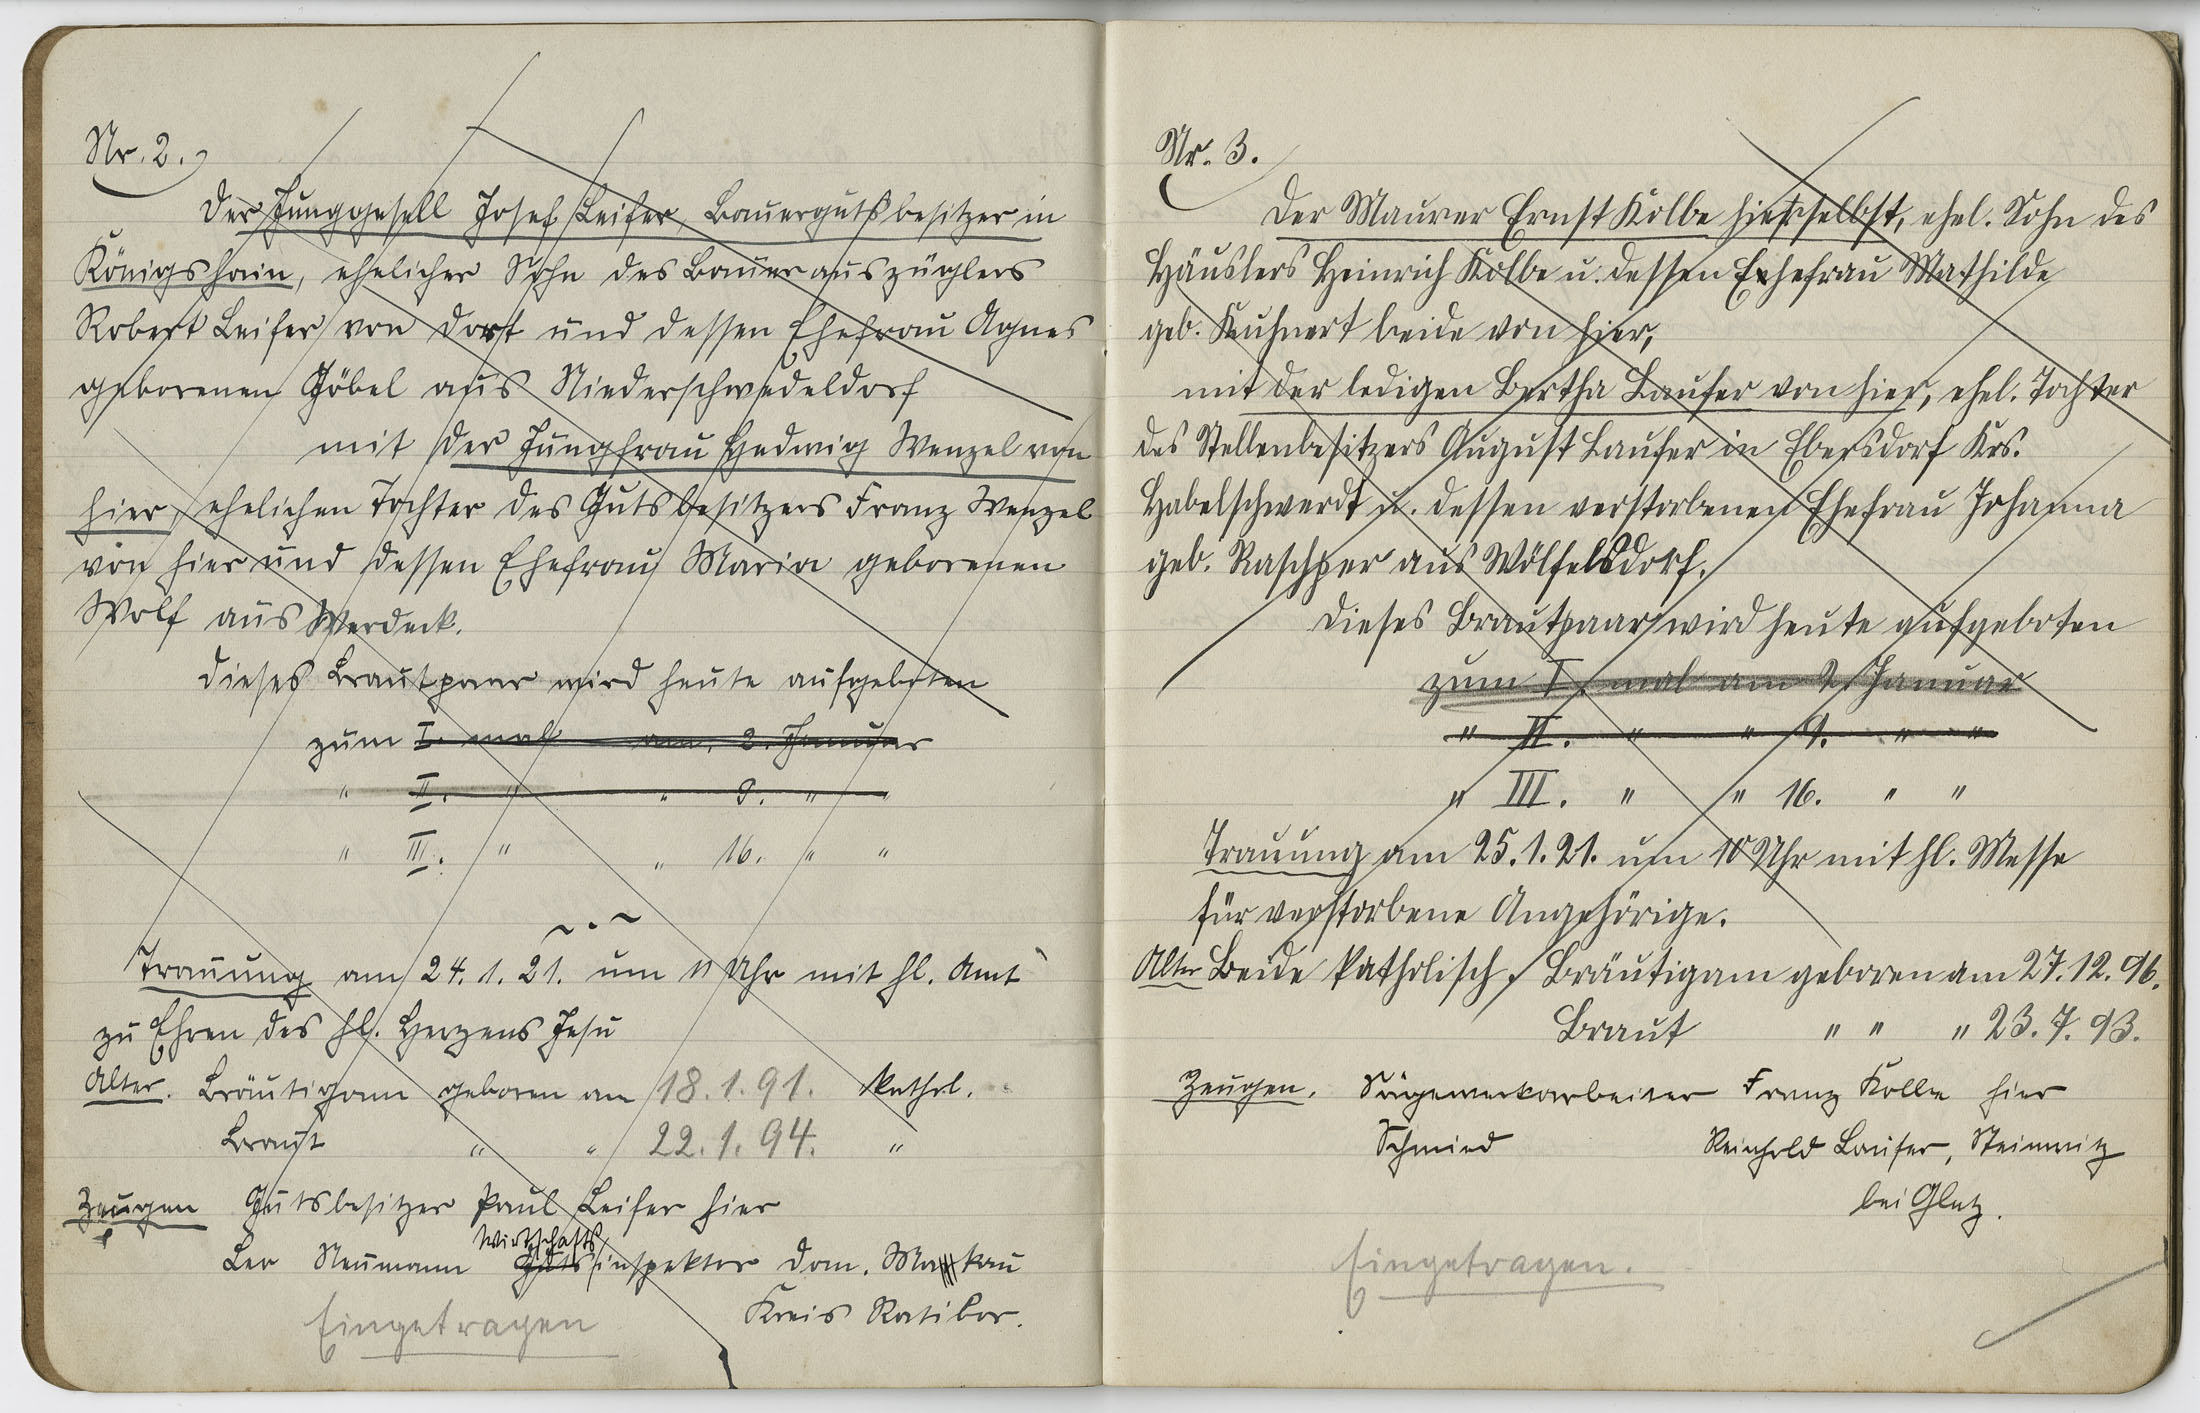 Nr. 2.
Der Junggesell Josef Leifer, Bauergutsbesitzer in
Königshain, ehelicher Sohn des Bauerauszüglers
Robert Leifer von dort und dessen Ehefrau Agnes
geborenen Göbel aus Niederschwedeldorf
mit der Jungfrau Hedwig Wenzel von
hier, ehelichen Tochter des Gutsbesitzers Franz Wenzel
von hier und dessen Ehefrau Maria geborenen
Wolf aus Werdeck.
Dieses Brautpaar wird heute aufgeboten
zum I. mal am 2. Januar
" II. " " 9. "
" III. " " 16. " "
Trauung am 24.1.21. um 11 Uhr mit hl. Amt
zu Ehren des hl. Herzens Jesu
Alter. Bräutigam geboren am 18.1.91. kathol.
Braut " " 22.1.94. "
Zeugen Gutsbesitzer Paul Leifer hier
Wirtschafts
Leo Neumann Gutsinspektor Dom. Makau
Kreis Ratibor.
Eingetragen
Nr. 3.
Der Maurer Ernst Kolbe hierselbst, ehel. Sohn des
Häuslers Heinrich Kolbe u. dessen Ehefrau Mathilde
geb. Kuhnert beide von hier,
mit der ledigen Bertha Laufer von hier, ehel. Tochter
des Stellenbesitzers August Laufer in Ebersdorf Krs.
Habelschwerdt u. dessen verstorbenen Ehefrau Johanna
geb. aus Wölfelsdorf.
Dieses Brautpaar wird heute aufgeboten
zum I. mal am 2. Januar
" II. " " 9. " "
" III. " " 16. " "
Trauung am 25.1.21. um 10 Uhr mit hl. Messe
für verstorbene Angehörige.
Alter Beide katholisch, Bräutigam geboren am 27.12.96.
Braut " " " 23.7.93.
Zeugen. Sägewerkarbeiter Franz Kolbe hier
Schmied Reinhold Laufer, Steinwitz
bei Glatz.
Eingetragen.